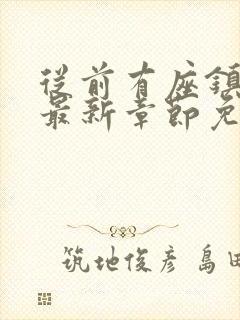 從前有座鎮
最新章節免
筑地俊彦 島田